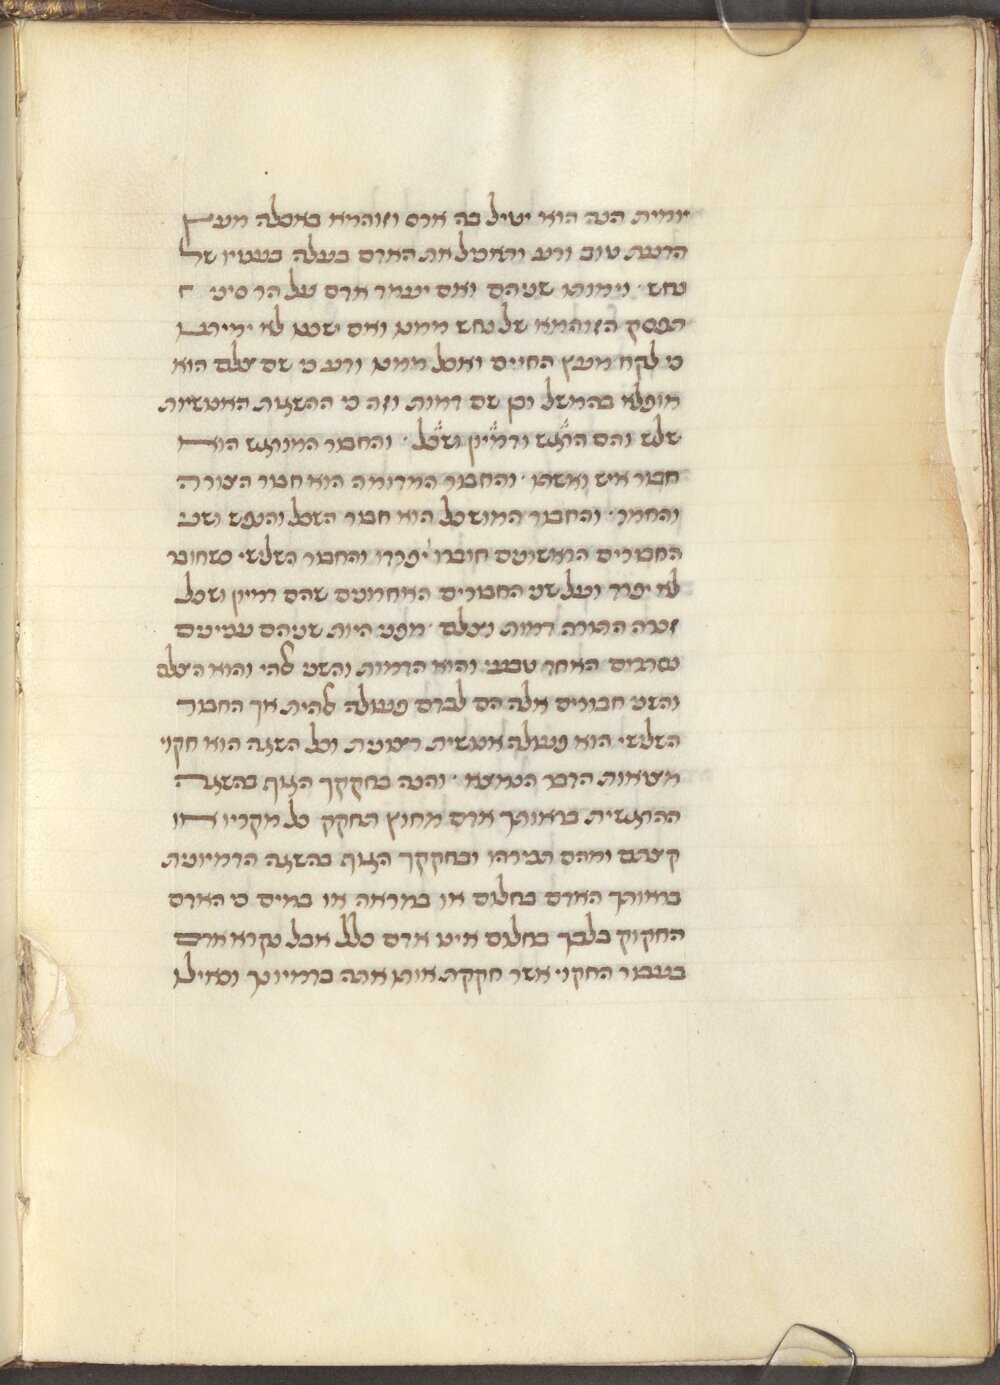 יומית הנה הוא יטיל בה ארס וזוהמא באכלה מעץ
הדעת טוב ורע ותאכיל את האדם בעלה בעטיו של
נחש · וימותו שניהם ואם יעמד אדם על הר סיני
תפסק הזוהמא של נחש ממנו ואם ישנו לא ימיתנו
כי לקח מעץ החיים ואכל ממנו ודע כי שם צלם הוא
מופלא בהמשל וכן שם דמות וזה כי ההשגות האנושיות
שלש והם הרגש ודמיון ושכל · והחבור המורגש הוא
חבור איש ואשתו · והחבור המדומה הוא חבור הצורה
והחמר · והחבור המושכל הוא חבור השכל והנפש ושני
החבורים הראשונים חוברו יפרדו והחבור השלשי כשחובר
לא יפרד ועל שני החבורים האחרונים שהם דמיון ושכל
זכרה התורה דמות וצלם · מפני היות שניהם עניינים
נסתרים האחד טבעי והוא הדמות והשני אלהי והוא הצלם
והשני חבורים אלה הם לבדם פעולה אלהית אך החבור
השלשי הוא פעולה אנושית רצונית וכל השגה הוא חקוי
מציאות הדבר הנמצא · והנה בחקקך הגוף בהשגה
ההרגשית בראותך אדם מחוץ תחקק כל מקריו או
קצתם ומהם תכירהו ובחקקך הגוף בהשגה הדמיונית
בראותך האדם בחלום או במראה או במים כי האדם
החקוק בלבך בחלום אינו אדם כלל אבל נקרא אדם
בעבור החקוי אשר חקקת אותו אתה בדמיונך וכאילו